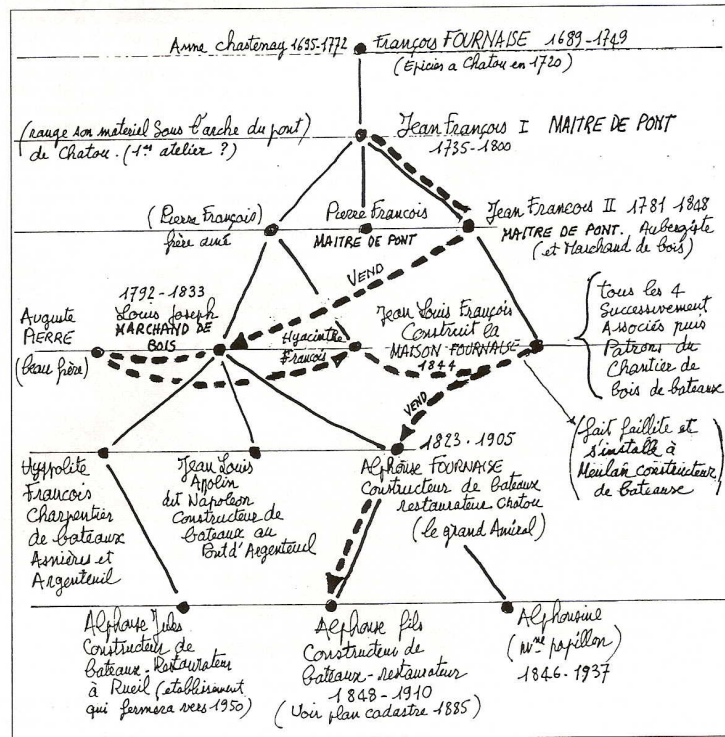 Anne Chastenay 1695-1772
François FOURNAISE 1689-1749
(Epicier a Chatou en 1720)
(range son materiel sous l'arche du pont)
de Chatou. (1er atelier ?)
Jean François I MAITRE DE PONT
1735-1800
(Pierre François)
frère ainé
Pierre Francois
MAITRE DE PONT
Jean Francois II 1781-1848
MAITRE DE PONT. Aubergiste
(et Marchand de bois)
VEND
Auguste
PIERRE
(beau frère)
1792-1833
Louis Joseph
MARCHAND DE
BOIS
Hyacinthe
François
Jean Louis François
Construit la
MAISON FOURNAISE
1844
tous les 4
Successivement
Associés puis
Patrons du
Chantier de
bois de bateaux
VEND
(fait faillite et
s'installe à
Meulan constructeur
de bateaux)
Hyppolite
François
Charpentier
de bateaux
Asnières et
Argenteuil
Jean Louis
Apolin
dit Napoleon
Constructeur de
bateaux au
Pont d'Argenteuil
1823-1905
Alphonse FOURNAISE
Constructeur de bateaux
restaurateur Chatou
(le grand Amiral)
Alphonse Jules
Constructeur de
bateaux-Restaurateur
à Rueil (etablissement
qui fermera vers 1950)
Alphonse fils
Constructeur de
Bateaux-restaurateur
1848-1910
(Voir plan cadastre 1885)
Alphonsine
(Mme papillon)
1846-1937